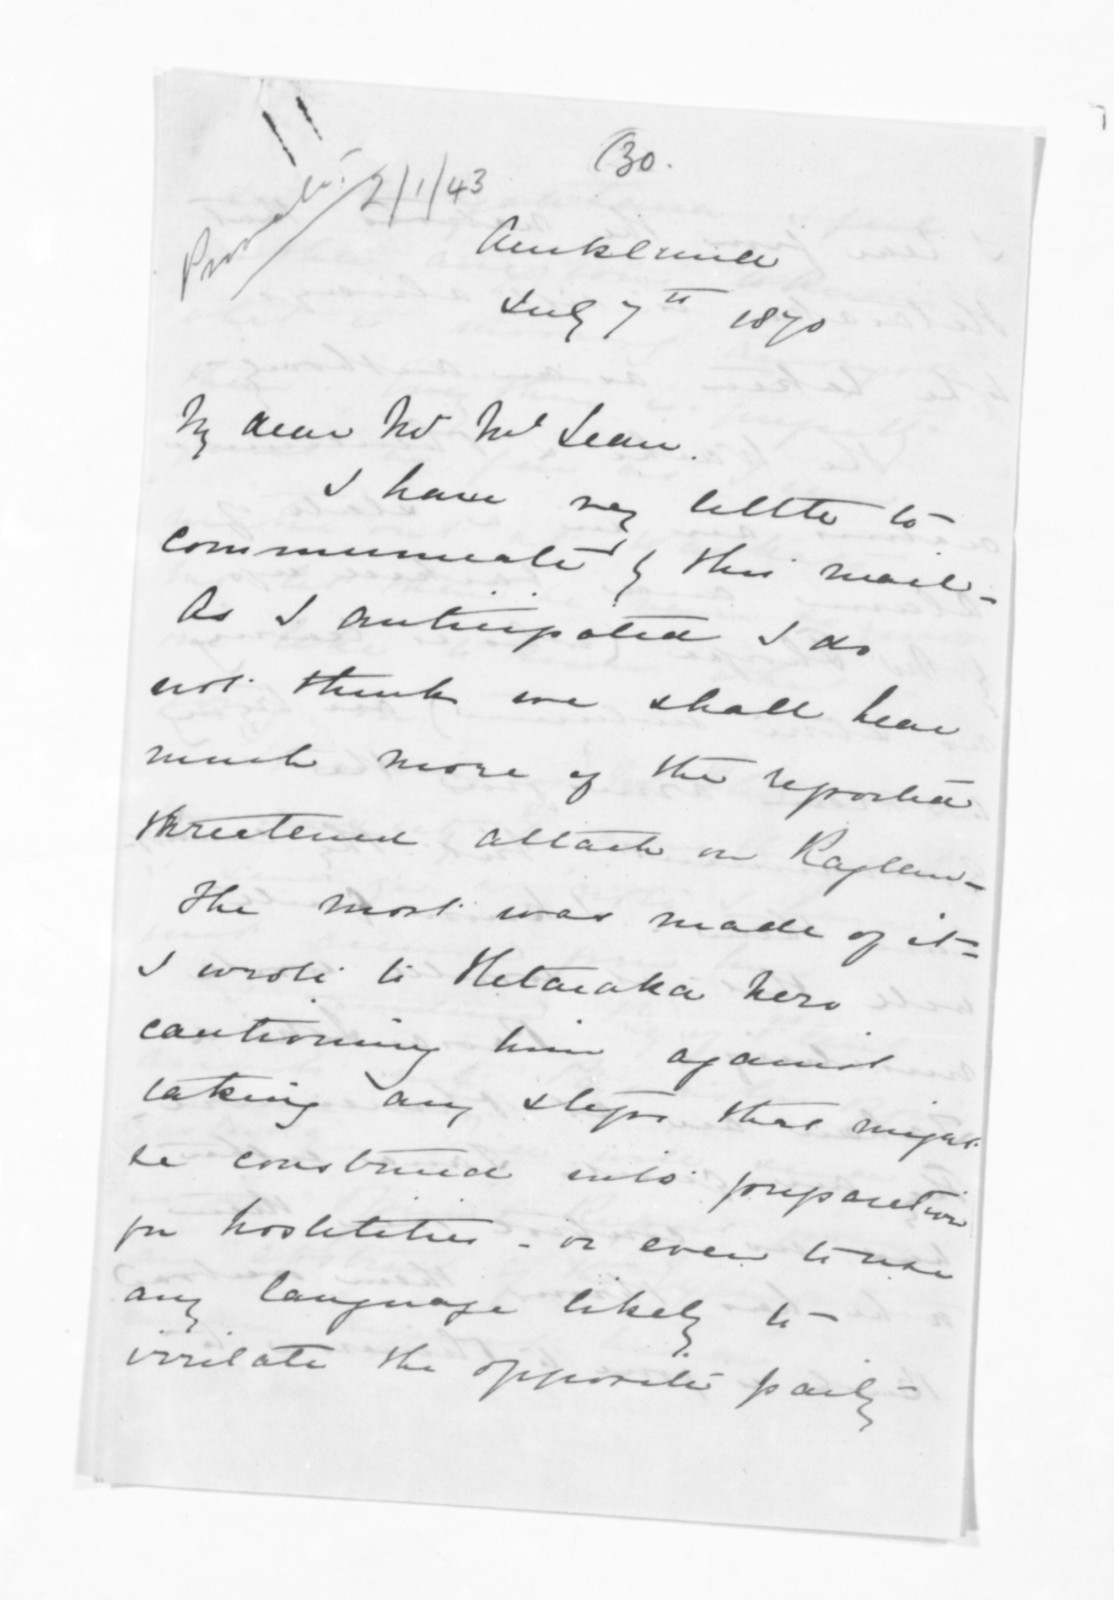 (30.
Private. 2/1/43
Auckland
July 7th 1870
My dear Mr McLean.
I have very little to
communicate by this mail -
As I anticipated I do
not think we shall hear
much more of the reported
threatened attack on Raglan -
The most was made of it -
I wrote to Hetaraka Nero
cautioning him against
taking any steps that might
be construed into preparation
for hostilities - or even to use
any language likely to
irritate the opposite party -